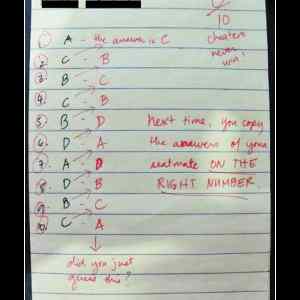 10
cheaters
never
win!
1. A - the answer is C
2. C - B
3. B - C
4. C - B
5. B - D
6. D - A
7. A - D
8. D - B
9. B - C
10. C - A
Next time, you copy
the answers of your
seatmate ON THE
RIGHT NUMBER.
did you just
guess this?